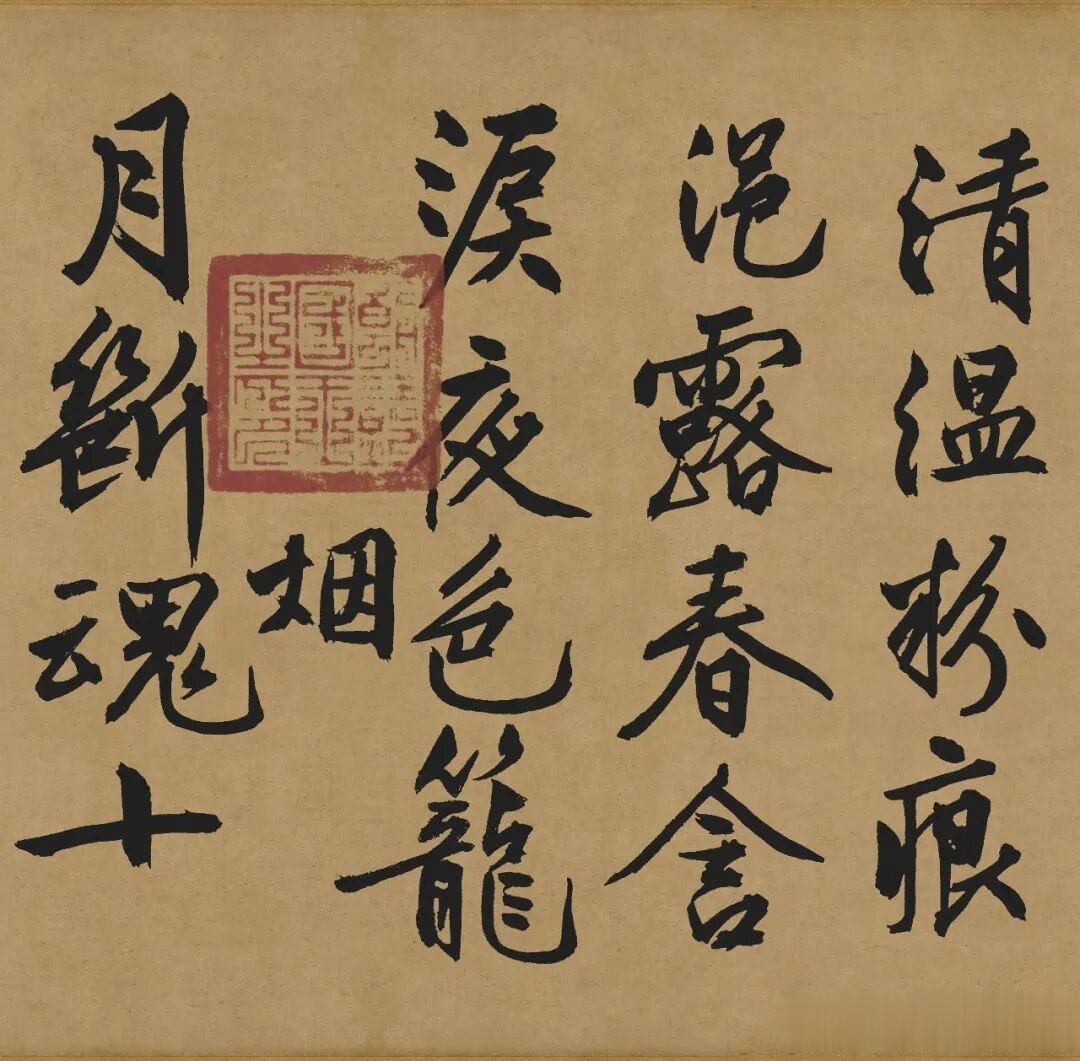 清温粉痕
浥露春含
淚夜色籠
烟
月斷魂十